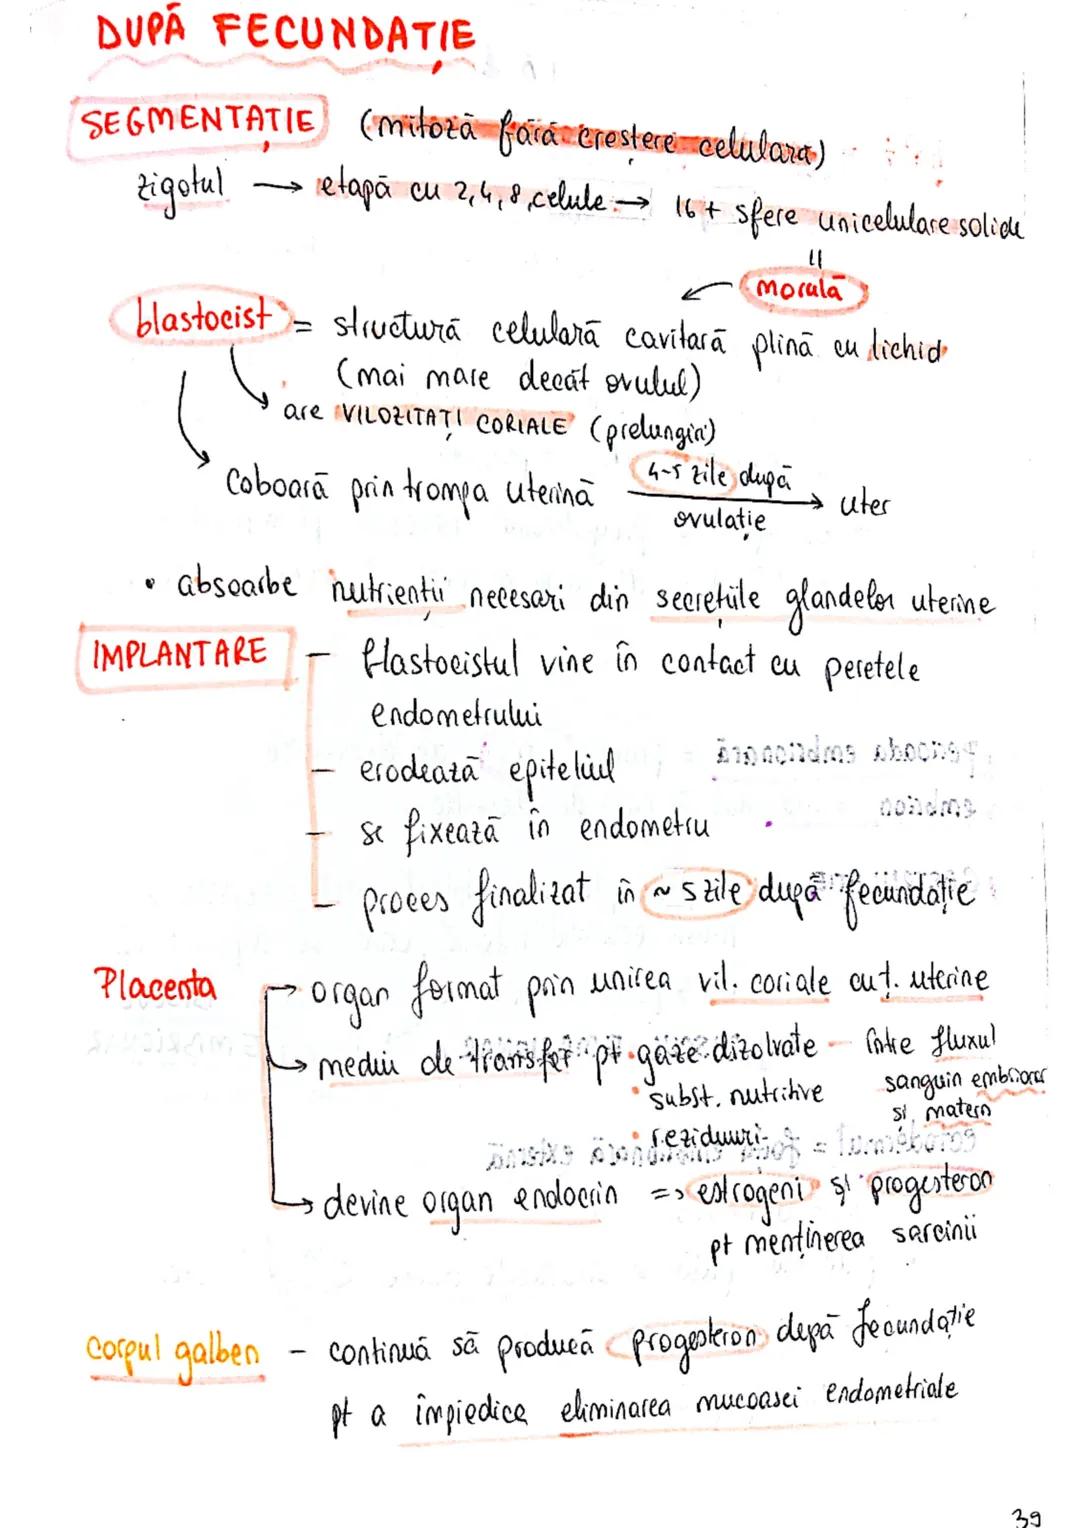 DUPĂ FECUNDAȚIE
SEGMENTAȚIE (mitoză fără creștere celulară)
zigotul → etapă cu 2,4,8 celule → 16+ sfere unicelulare solide
=
morulă
blastocist = structură celulară cavitară plină cu lichid
(mai mare decât ovulul)
are VILOZITĂȚI CORIALE (prelungiri)
Coboară prin trompa uterină 4-5 zile după ovulație → uter
• absoarbe nutrienții necesari din secrețiile glandelor uterine
IMPLANTARE – blastocistul vine în contact cu peretele
endometrului
– erodează epiteliul
– se fixează în endometru
– proces finalizat în ~ 5 zile după fecundație
Placenta → organ format prin unirea vil. coriale cu ț. uterine
→ mediu de transfer pt • gaze dizolvate – între fluxul
• subst. nutritive sanguin embrionar
și matern
• reziduuri
→ devine organ endocrin => estrogeni și progesteron
pt menținerea sarcinii
Corpul galben – continuă să producă progesteron după fecundație
pt a împiedica eliminarea mucoasei endometriale
39